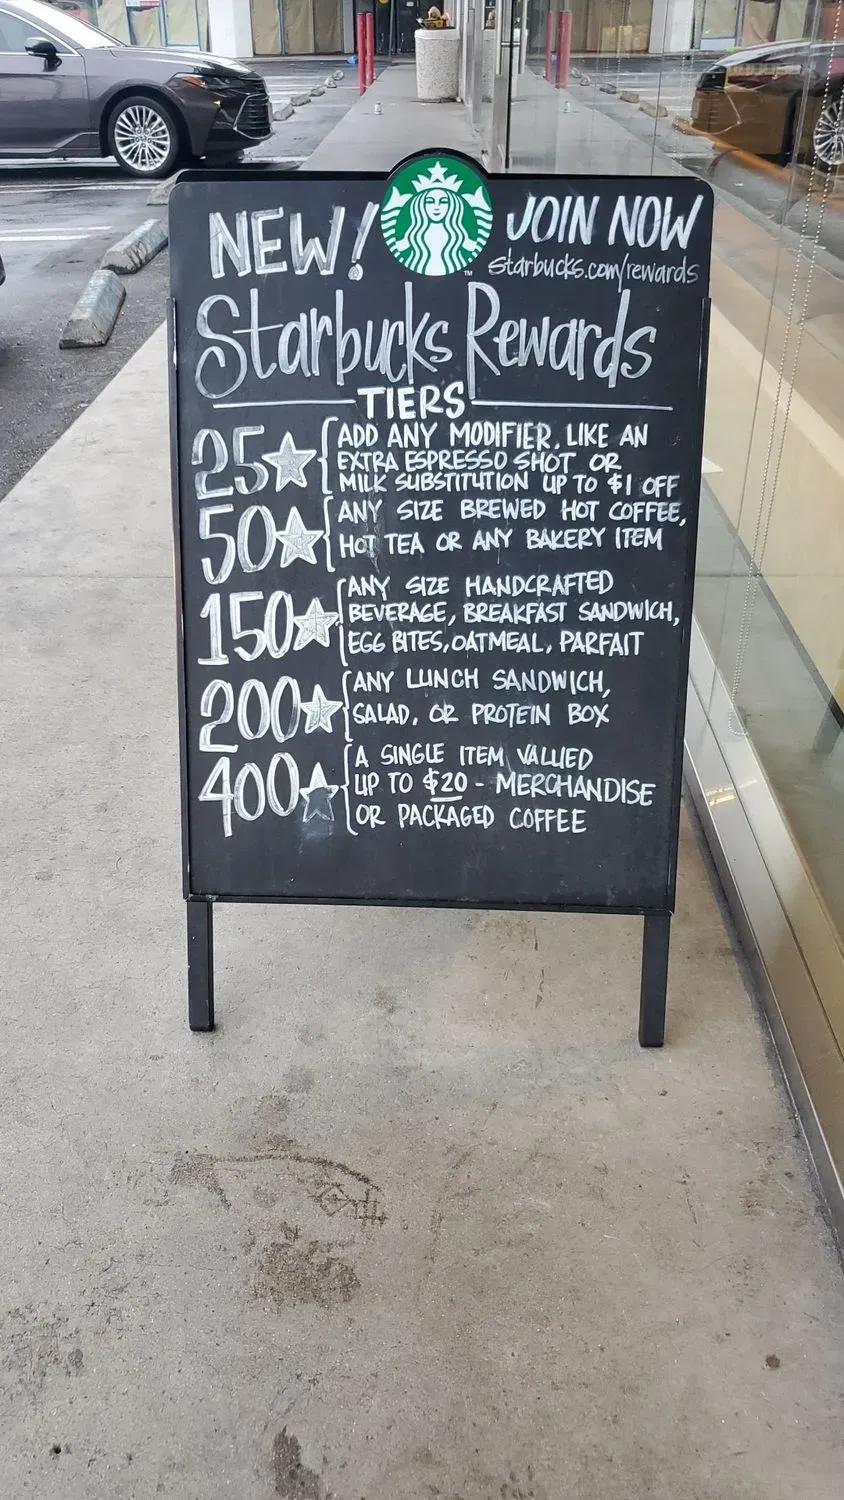 NEW!
JOIN NOW
starbucks.com/rewards
Starbucks Rewards
TIERS
25 ADD ANY MODIFIER, LIKE AN
EXTRA ESPRESSO SHOT OR
MILK SUBSTITUTION UP TO $1 OFF
50 ANY SIZE BREWED HOT COFFEE,
HOT TEA OR ANY BAKERY ITEM
150 ANY SIZE HANDCRAFTED
BEVERAGE, BREAKFAST SANDWICH,
EGG BITES, OATMEAL, PARFAIT
200 ANY LUNCH SANDWICH,
SALAD, OR PROTEIN BOX
400 A SINGLE ITEM VALUED
UP TO $20 - MERCHANDISE
OR PACKAGED COFFEE